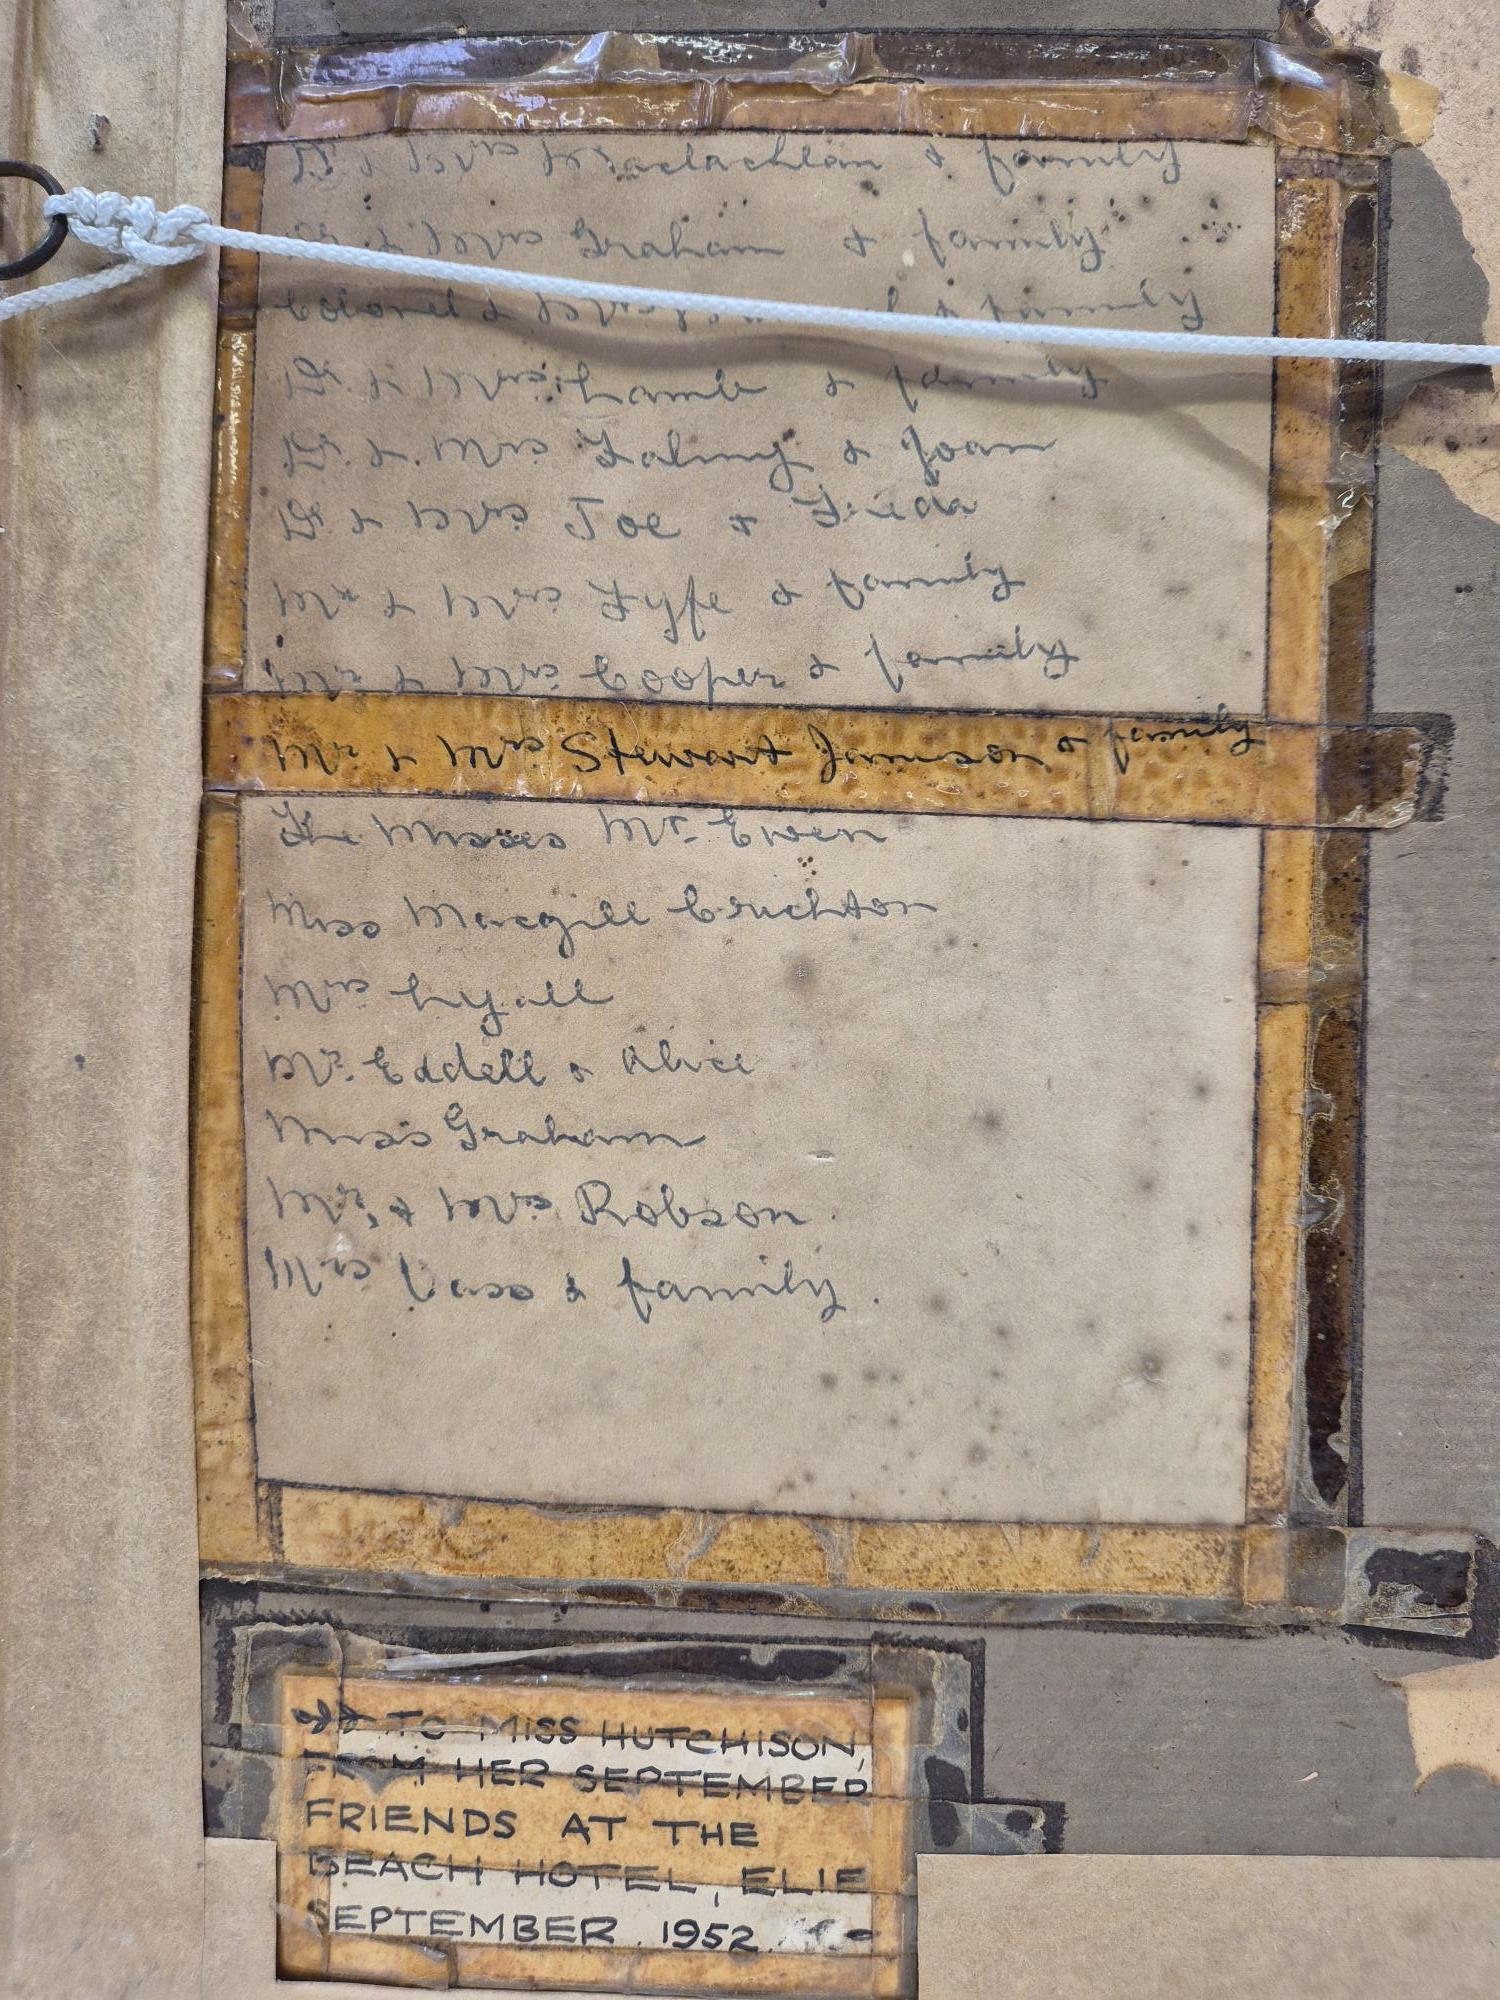 Dr & Mrs Maclachlan & family
Dr & Mrs Graham & family
Colonel & Mrs & family
Dr. & Mrs. Lamb & family
Dr. & Mrs. Fahmy & Joan
Dr & Mrs. Joe & Frieda
Mr & Mrs. Fyfe & family
Mr & Mrs. Cooper & family
Mr & Mrs. Stewart Jamieson & family
The Misses Mc Ewen
Miss Macgill Crichton
Mrs Lyall
Mr. Eddell & Alice
Miss Graham
Mr. & Mrs. Robson.
Mrs Vass & family.
TO MISS HUTCHISON,
FROM HER SEPTEMBER
FRIENDS AT THE
BEACH HOTEL, ELIE
SEPTEMBER. 1952.